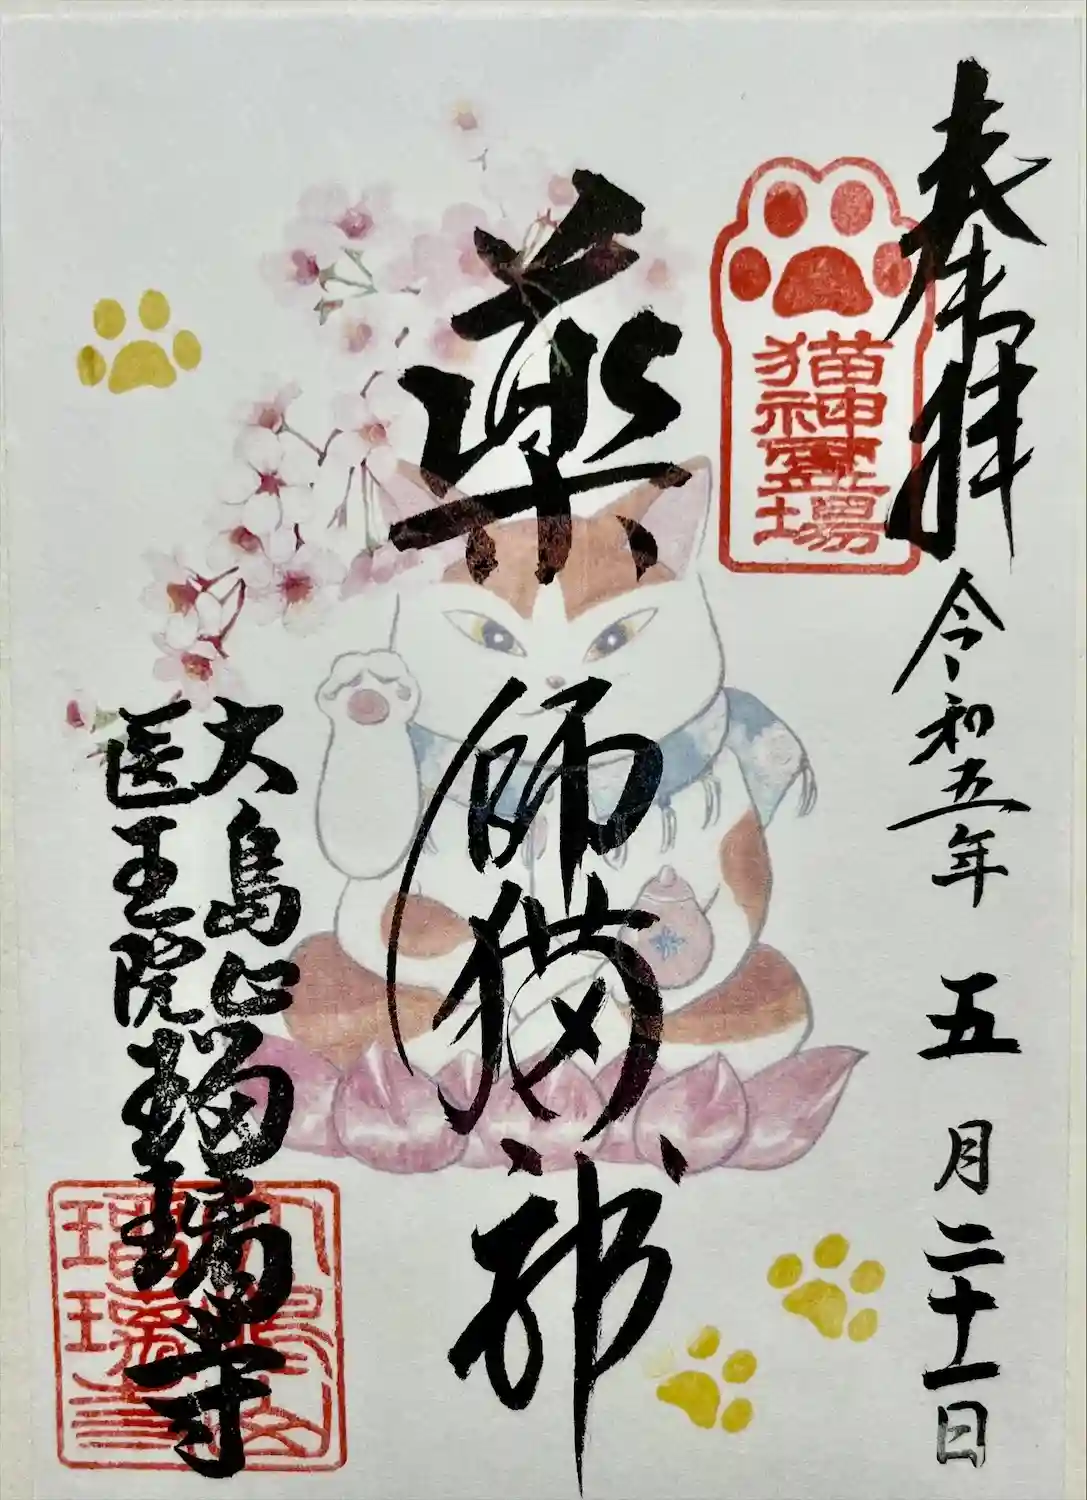 奉拝
令和五年 五月二十一日
猫神霊場
薬師猫神
大島山瑠璃寺
医王院